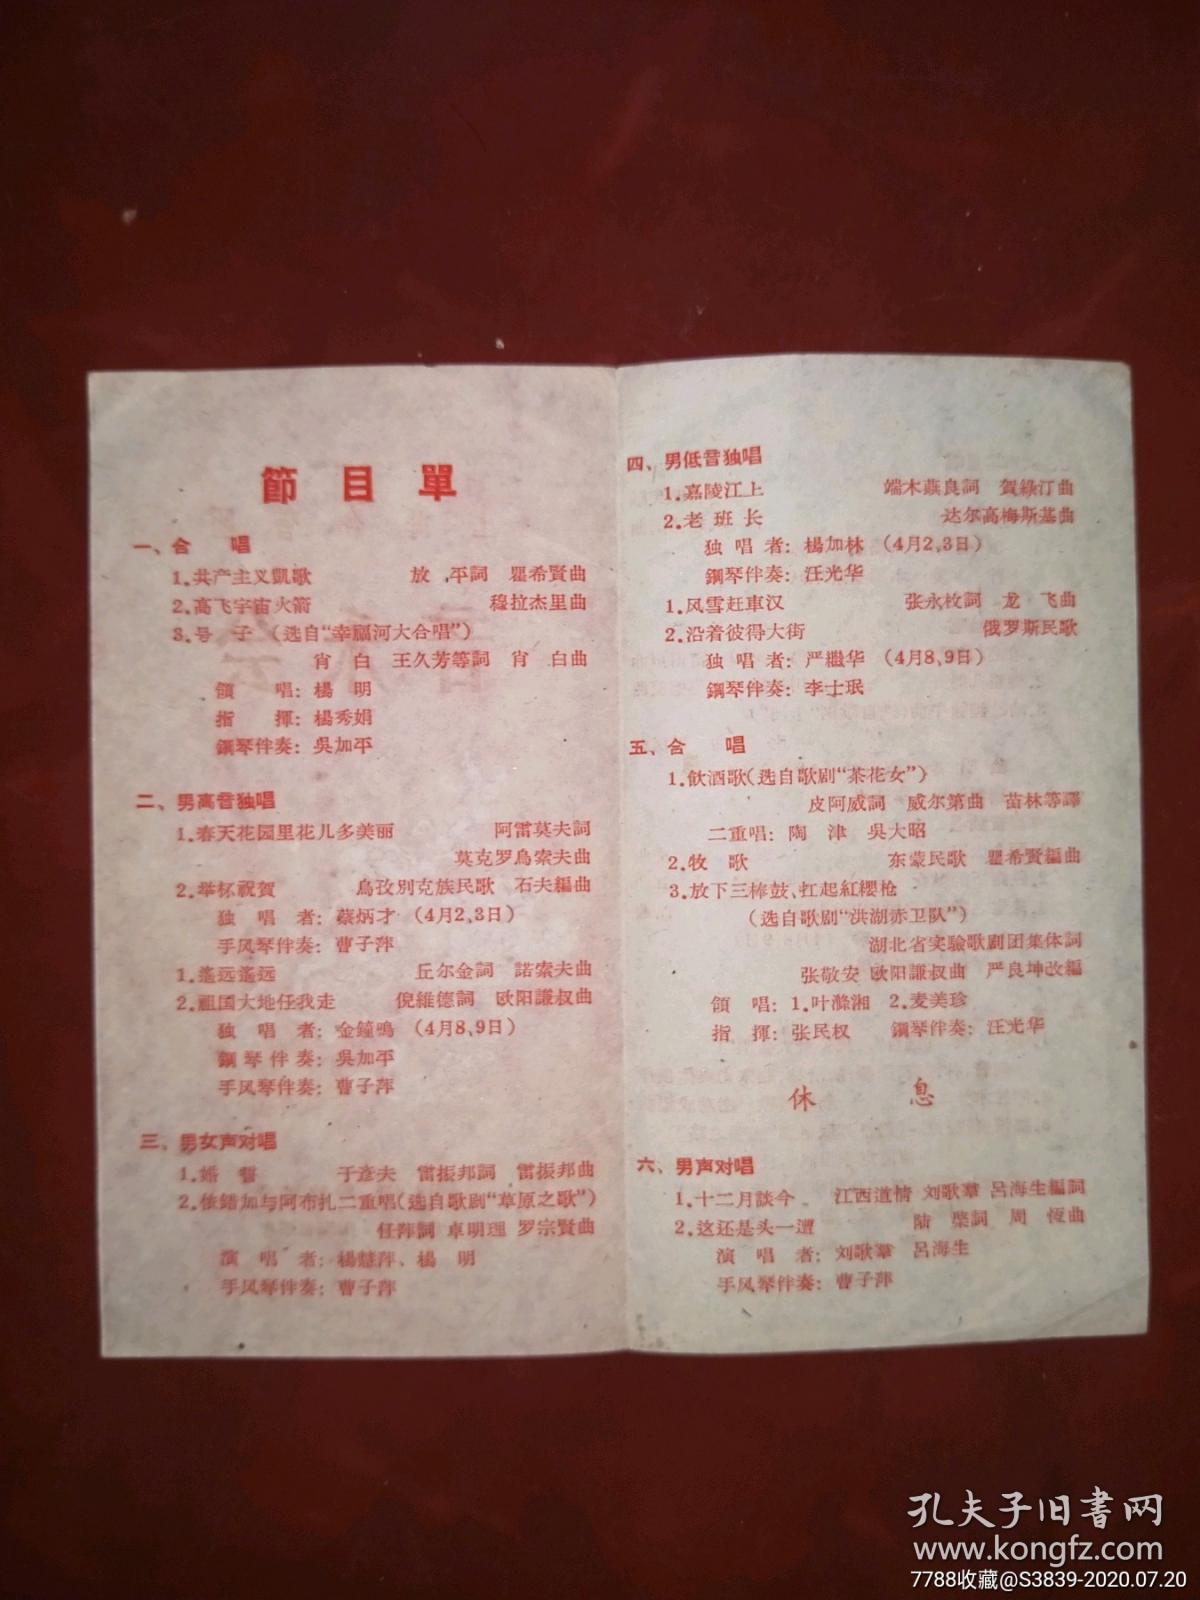 節目單
一、合 唱
1.共产主义凱歌 放 平詞 瞿希賢曲
2.高飞宇宙火箭 穆拉杰里曲
3.号 子 (选自“幸福河大合唱”)
肖 白 王久芳等詞 肖 白曲
領 唱: 楊 明
指 揮: 楊秀娟
鋼琴伴奏: 吳加平
二、男高音独唱
1.春天花园里花儿多美丽 阿雷莫夫詞
莫克罗烏索夫曲
2.举杯祝賀 烏孜别克族民歌 石夫編曲
独 唱 者: 蔡炳才 (4月2,3日)
手风琴伴奏: 曹子萍
1.遙远遙远 丘尔金詞 諾索夫曲
2.祖国大地任我走 倪維德詞 欧阳謙叔曲
独 唱 者: 金鐘鳴 (4月8,9日)
鋼琴伴奏: 吳加平
手风琴伴奏: 曹子萍
三、男女声对唱
1.婚 誓 于彦夫 雷振邦詞 雷振邦曲
2.依錯加与阿布扎二重唱(选自歌剧“草原之歌”)
任萍詞 卓明理 罗宗賢曲
演 唱 者: 楊慧萍、楊 明
手风琴伴奏: 曹子萍
四、男低音独唱
1.嘉陵江上 端木蕻良詞 賀綠汀曲
2.老班长 达尔高梅斯基曲
独 唱 者: 楊加林 (4月2,3日)
鋼琴伴奏: 汪光华
1.风雪赶車汉 张永枚詞 龙 飞曲
2.沿着彼得大街 俄罗斯民歌
独 唱 者: 严繼华 (4月8,9日)
鋼琴伴奏: 李士珉
五、合 唱
1.飲酒歌(选自歌剧“茶花女”)
皮阿威詞 威尔第曲 苗林等譯
二重唱: 陶 津 吳大昭
2.牧 歌 东蒙民歌 瞿希賢編曲
3.放下三棒鼓、扛起紅纓枪
(选自歌剧“洪湖赤卫队”)
湖北省实驗歌剧团集体詞
张敬安 欧阳謙叔曲 严良坤改編
領 唱: 1.叶滌湘 2.麦美珍
指 揮: 张民权 鋼琴伴奏: 汪光华
休 息
六、男声对唱
1.十二月談今 江西道情 刘歌羣 呂海生編詞
2.这还是头一遭 陆 棨詞 周 恆曲
演 唱 者: 刘歌羣 呂海生
手风琴伴奏: 曹子萍
孔夫子旧书网
www.kongfz.com
7788收藏@S3839-2020.07.20